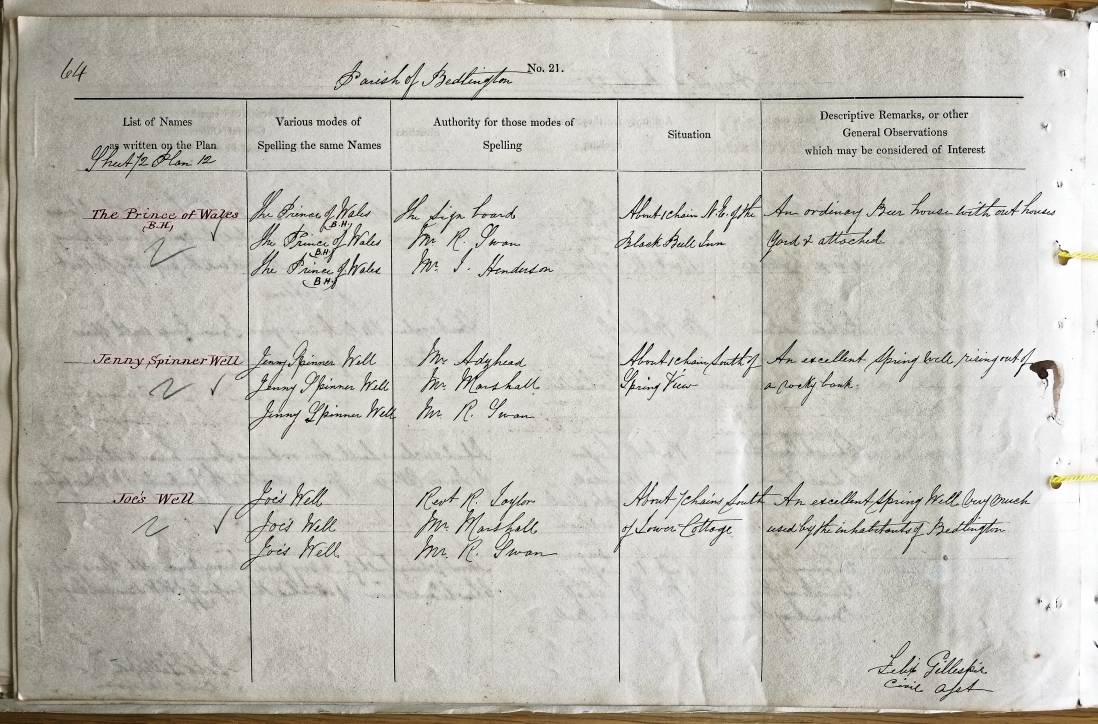 64
Parish of Bedlington
No. 21.
List of Names
as written on the Plan
Sheet 72 Plan 12
Various modes of
Spelling the same Names
Authority for those modes of
Spelling
Situation
Descriptive Remarks, or other
General Observations
which may be considered of Interest
The Prince of Wales
(B.H.)
The Prince of Wales
(B.H.)
The Prince of Wales
(B.H.)
The Prince of Wales
(B.H.)
The Sign board
Mr. R. Swan
Mr. J. Henderson
About 1 chain N.E. of the
Black Bull Inn
An ordinary Beer house with out houses
Yard & attached
Jenny Spinner Well
Jenny Spinner Well
Jenny Spinner Well
Jenny Spinner Well
Mr. Adyhead
Mr. Marshall
Mr. R. Swan
About 1 chain South of
Spring View
An excellent Spring well, rising out of
a rocky bank.
Joe's Well
Joe's Well
Joe's Well
Joe's Well
Revt. R. Taylor
Mr. Marshall
Mr. R. Swan
About 7 chains South
of Lower Cottage
An excellent Spring Well, very much
used by the inhabitants of Bedlington
Felix Gillespie
Civil Asst